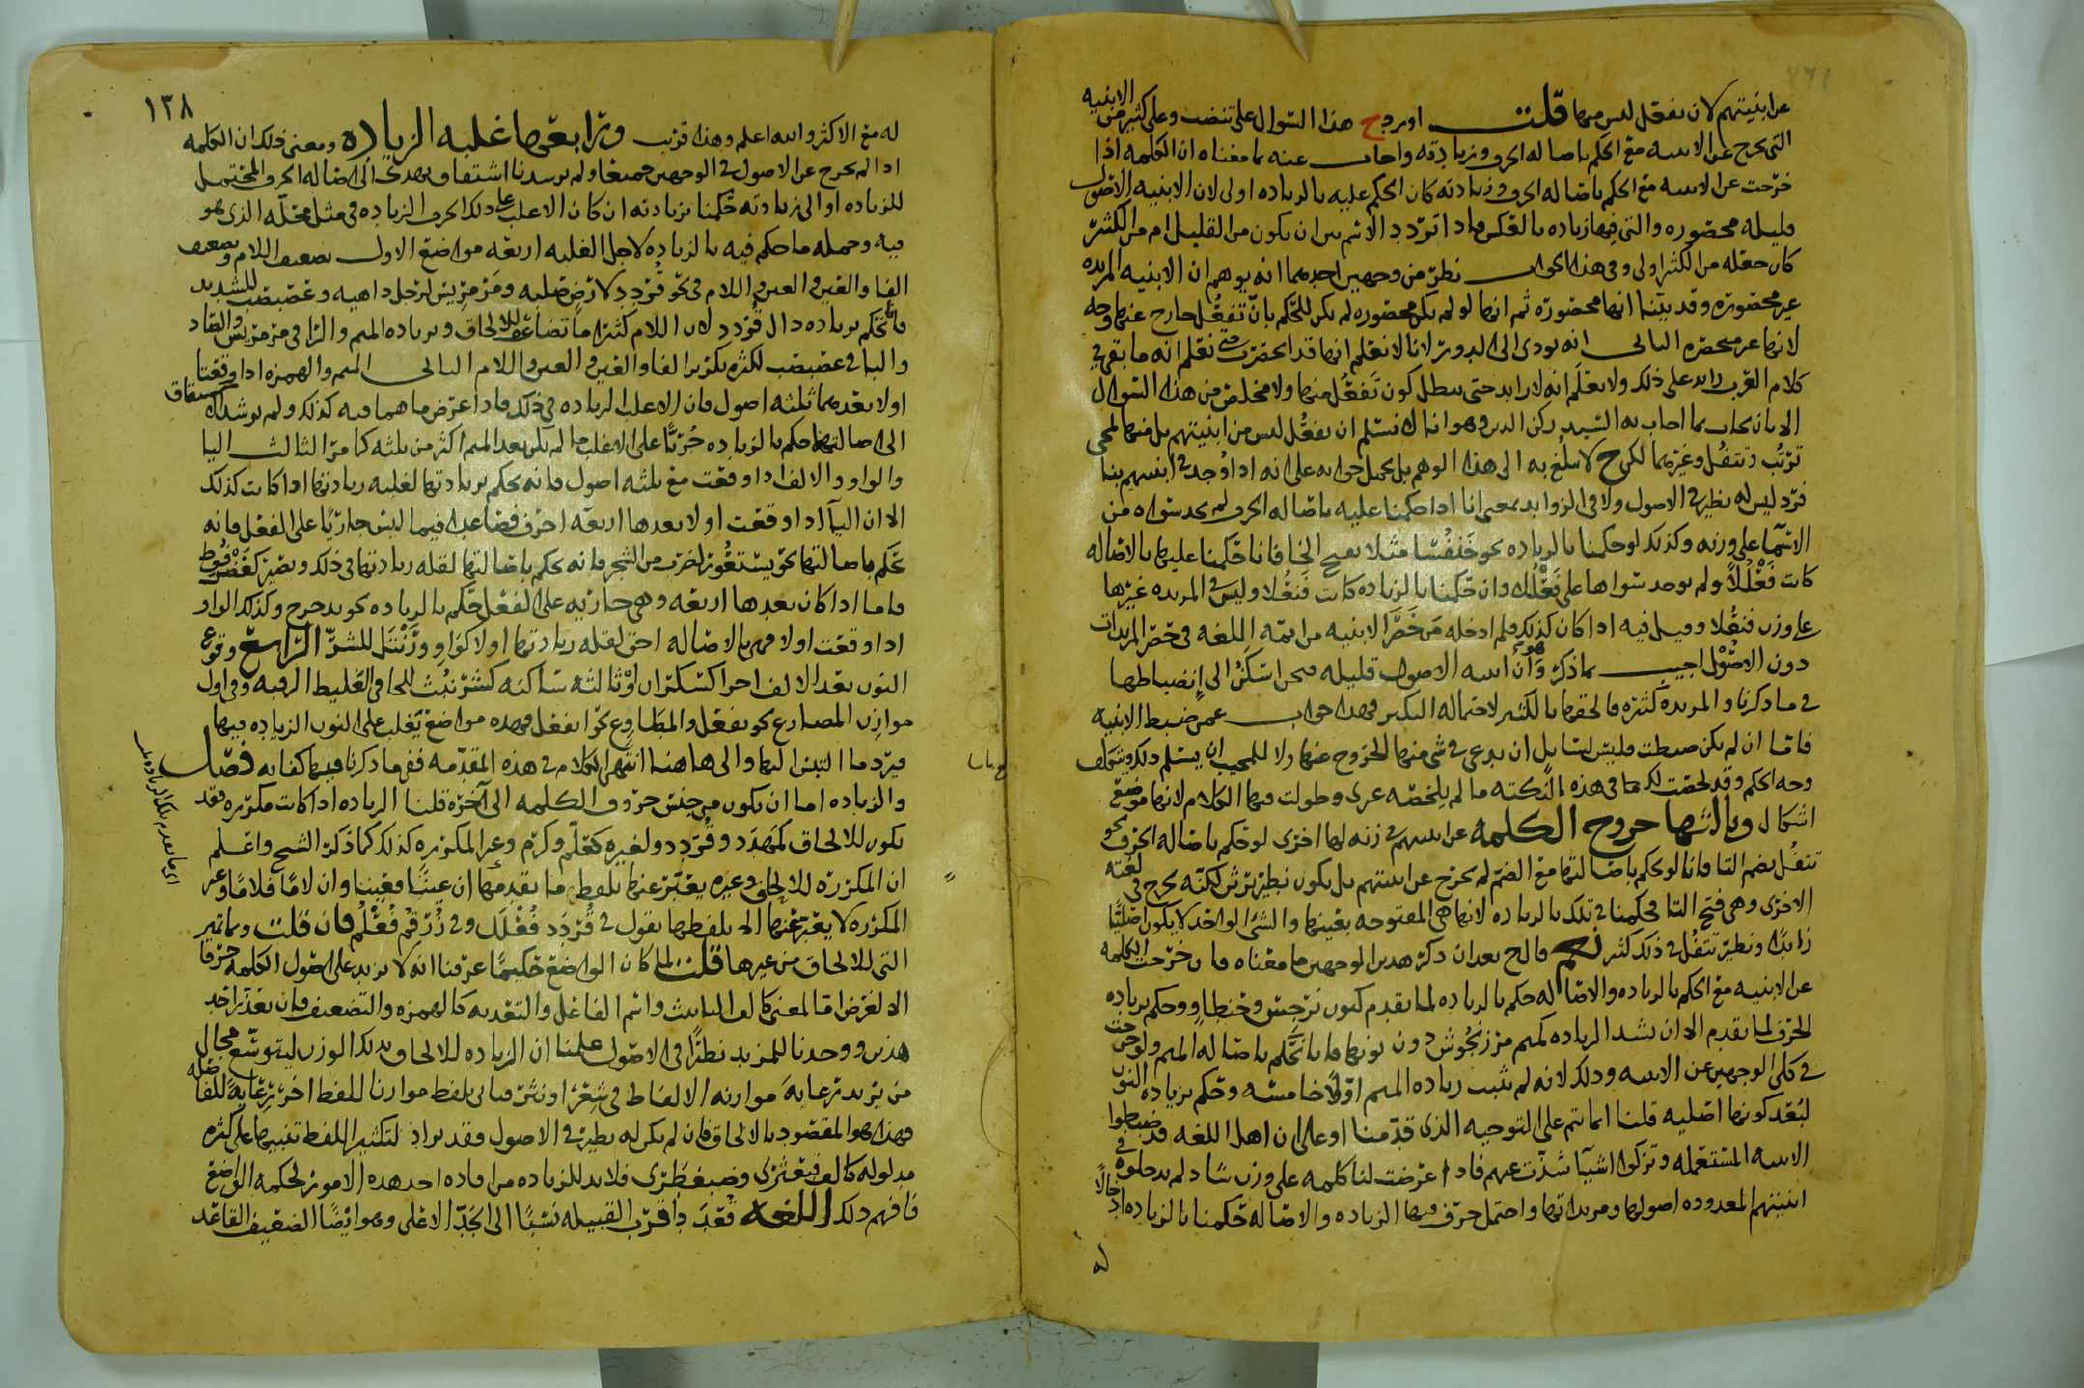 عن ابنيتهم لان تفعل ليس منها قلت اورد ح هذا السوال على تنضب وعلى كثير من الابنيه
التي تخرج عن الابنيه مع الحكم باصاله الحرف وزيادته واجاب عنه بما معناه ان الكلمه اذا
خرجت عن الابنيه مع الحكم باصاله الحرف وزيادته كان الحكم عليه بالزياده اولى لان الابنيه الاصول
قليله محصوره والتي فيها زياده بالعكس فاذا تردد الاسم بين ان يكون من القليل ام من الكثير
كان جعله من الكثير اولى وفي هذا الجواب نظر من وجهين احدهما انه يوهم ان الابنيه المزيده
غير محصوره وقد بينا انها محصوره ثم انها لو لم تكن محصوره لم يكن للتحكم بان تفعل خارج عنها وجه
لانها غير منحصره الثاني انه يودي الى الدور لانا لا نعلم انها قد انحصرت حتى نعلم انه ما بقي في
كلام العرب زايد على ذلك ولا نعلم انه لا زايد حتى يبطل كون تفعل منها ولا مخلص من هذا السوال
الا بان يجاب بما اجاب به السيد ركن الدين وهو انا لا نسلم ان تفعل ليس من ابنيتهم بل منها لمجي
ترتب وتتفل وغيرهما لكن ح لا يبلغ به الى هذا الوهم بل يحمل جوابه على انه اذا وجد في ابنيتهم بنا
فرد ليس له نظير في الاصول ولا في الزوايد بمعنى انا اذا حكمنا عليه باصاله الحرف لم نجد سواه من
الاسما على وزنه وكذلك لو حكمنا بالزياده نحو خنفسا مثلا بفتح الخا فانا ان حكمنا عليها بالاصاله
كانت فعللا ولم يوجد سواها على فعللا وان حكمنا بالزياده كانت فنعلا وليس في المزيده غيرها
على وزن فنعلا وقيل فيه اذا كان كذلك فلم ادخله من حصر الابنيه من ايمه اللغه في حصر المزيدات
دون الاصول اجيب بما ذكر وهو ان ابنيه الاصول قليله
في ما ذكرنا والمزيده كثيره فالحقوها بالكثير لاحتماله التكثير فهذا جواب عمن ضبط الابنيه
فاما ان لم تكن ضبطت فليس لسايل ان يدعي في شي منها الخروج عنها ولا للمجيب ان يسلم ذلك
وجه الحكم وقد لخصت لك ما في هذه النكته ما لم يلخصه غيري وطولت فيها الكلام لانها موضع
اشكال وثالثها خروج الكلمه عن ابنيتهم في زنه لها اخرى لو حكم باصاله الحرف نحو
تتفل بضم التا فانا لو نحكم باصالتها مع الضم لم تخرج عن ابنيتهم بل يكون نظير برثن لكنه يخرج في لغته
الاخرى وهي فتح التا فحكمنا في تلك بالزياده لانها هي المفتوحه بعينها والشي الواحد لا يكون اصليا
زايدا ونظير تتفل في ذلك كثير قال ح بعد ان ذكر هذين الوجهين ما معناه فان خرجت الكلمه
عن الابنيه مع الحكم بالزياده والاصاله حكم بالزياده لما تقدم كنون نرجس وحنطاو وحكم بزياده
الحرف لما تقدم الا ان تشذ الزياده كميم مرزنجوش دون نونها فانا نحكم باصاله الميم ولو خرجت
في كلي الوجهين عن الابنيه وذلك لانه لم يثبت زياده الميم اولا خامسه وحكم بزياده النون
لبعد كونها اصليه قلنا انما تم على التوجيه الذي قدمنا او على ان اهل اللغه قد ضبطوا
الابنيه المستعمله وتركوا اشيا شذت عنهم فاذا عرضت لنا كلمه على وزن شاذ لم يدخلوه في
ابنيتهم المعدوده اصولها ومزيداتها واحتمل حرف فيها الزياده والاصاله حكمنا بالزياده
١٣٨
له مع الاكثر والله اعلم وهذا قريب ورابعها غلبه الزياده ومعنى ذلك ان الكلمه
اذا لم تخرج عن الاصول في الوجهين جميعا ولم يرشدنا اشتقاق يهدي الى اصاله الحرف المحتمل
للزياده او الى زيادته حكمنا بزيادته ان كان الاغلب على ذلك الحرف الزياده في مثل محله الذي هو
فيه وجمله ما حكم فيه بالزياده لاجل الغلبه اربعه مواضع الاول تضعيف اللام وتضعيف
الفا والعين والعين واللام في نحو قردد لارض صلبه ومرمريس لرجل داهيه وعصبصب للشديد
فانا نحكم بزياده دال قردد لان اللام كثيرا ما تضاعف للالحاق وبزياده الميم والرا في مرمريس والصاد
والبا في عصبصب لكثره تكرير الفا والعين والعين واللام الثاني الميم والهمزه اذا وقعتا
اولا بعدهما ثلثه اصول فان الاغلب الزياده في ذلك فاذا عرض ما هما فيه كذلك ولم يرشد اشتقاق
الى اصالتها حكم بالزياده جريا على الاغلب ما لم يكن بعد الميم اكثر من ثلثه كما مر الثالث اليا
والواو والالف اذا وقعت مع ثلثه اصول فانه يحكم بزيادتها لغلبه زيادتها اذا كانت كذلك
الا ان اليا اذا وقعت اولا بعدها اربعه احرف فصاعدا فيما ليس جاريا على الفعل فانه
يحكم باصالتها نحو يستعور لضرب من الشجر فانه يحكم باصالتها لقله زيادتها في ذلك وتصير كعضرفوط
فاما اذا كان بعدها اربعه وهي جاريه على الفعل حكم بالزياده نحو يدحرج وكذلك الواو
اذا وقعت اولا فهي بالاصاله احق لقله زيادتها اولا كواو ورنتل للشر الرابع وقوع
النون بعد الالف اخرا كسكران او ثالثه ساكنه كشرنبث للجافي الغليظ الرقبه وفي اول
موازن المضارع نحو نفعل والمطاوع نحو انفعل فهذه مواضع يغلب على النون الزياده فيها
فيرد ما التبس اليها والى هاهنا انتهى الكلام في هذه المقدمه ففي ما ذكرنا فيها كفايه فصل
والزياده اما ان تكون من جنس حروف الكلمه الى اخره قلنا الزياده اذا كانت مكرره فقد
تكون للالحاق كمهدد وقردد ولغيره كعلم وكرم وغير المكرره كذلك كما ذكر الشيخ واعلم
ان المكرره للالحاق وغيره يعبر عنها بلفظ ما تقدمها ان عينا فعينا وان لاما فلاما وغير
المكرره لا يعبر عنها الا بلفظها تقول في قردد فعلل وفي زرقم فعلم فان قلت وبما تميز
التي للالحاق من غيرها قلت لما كان الواضع حكيما عرفنا انه لا يزيد على اصول الكلمه حرفا
الا لغرض اما لمعنى كالف التانيث واسم الفاعل والتعديه كالهمزه والتضعيف فان تعذر احد
هذين ووجدنا للمزيد نظيرا في الاصول علمنا ان الزياده للالحاق بذلك الوزن ليتوسع مجال
من يريد رعايه موازنه الالفاظ في شعر او نثر فياتي بلفظ موازنا للفظ اخر رعايه للفاصله
وهذا هو المقصود بالالحاق فان لم يكن له نظير في الاصول فقد يراد لتكثير اللفظ تنبيها على كثره
مدلوله كالف قبعثرى وضبغطرى فلا بد للزياده من افاده احد هذه الامور لحكمه الواضع
فافهم ذلك اللغه قعدد اقرب القبيله نسبا الى الجد الاعلى وهو ايضا الضعيف القاعد